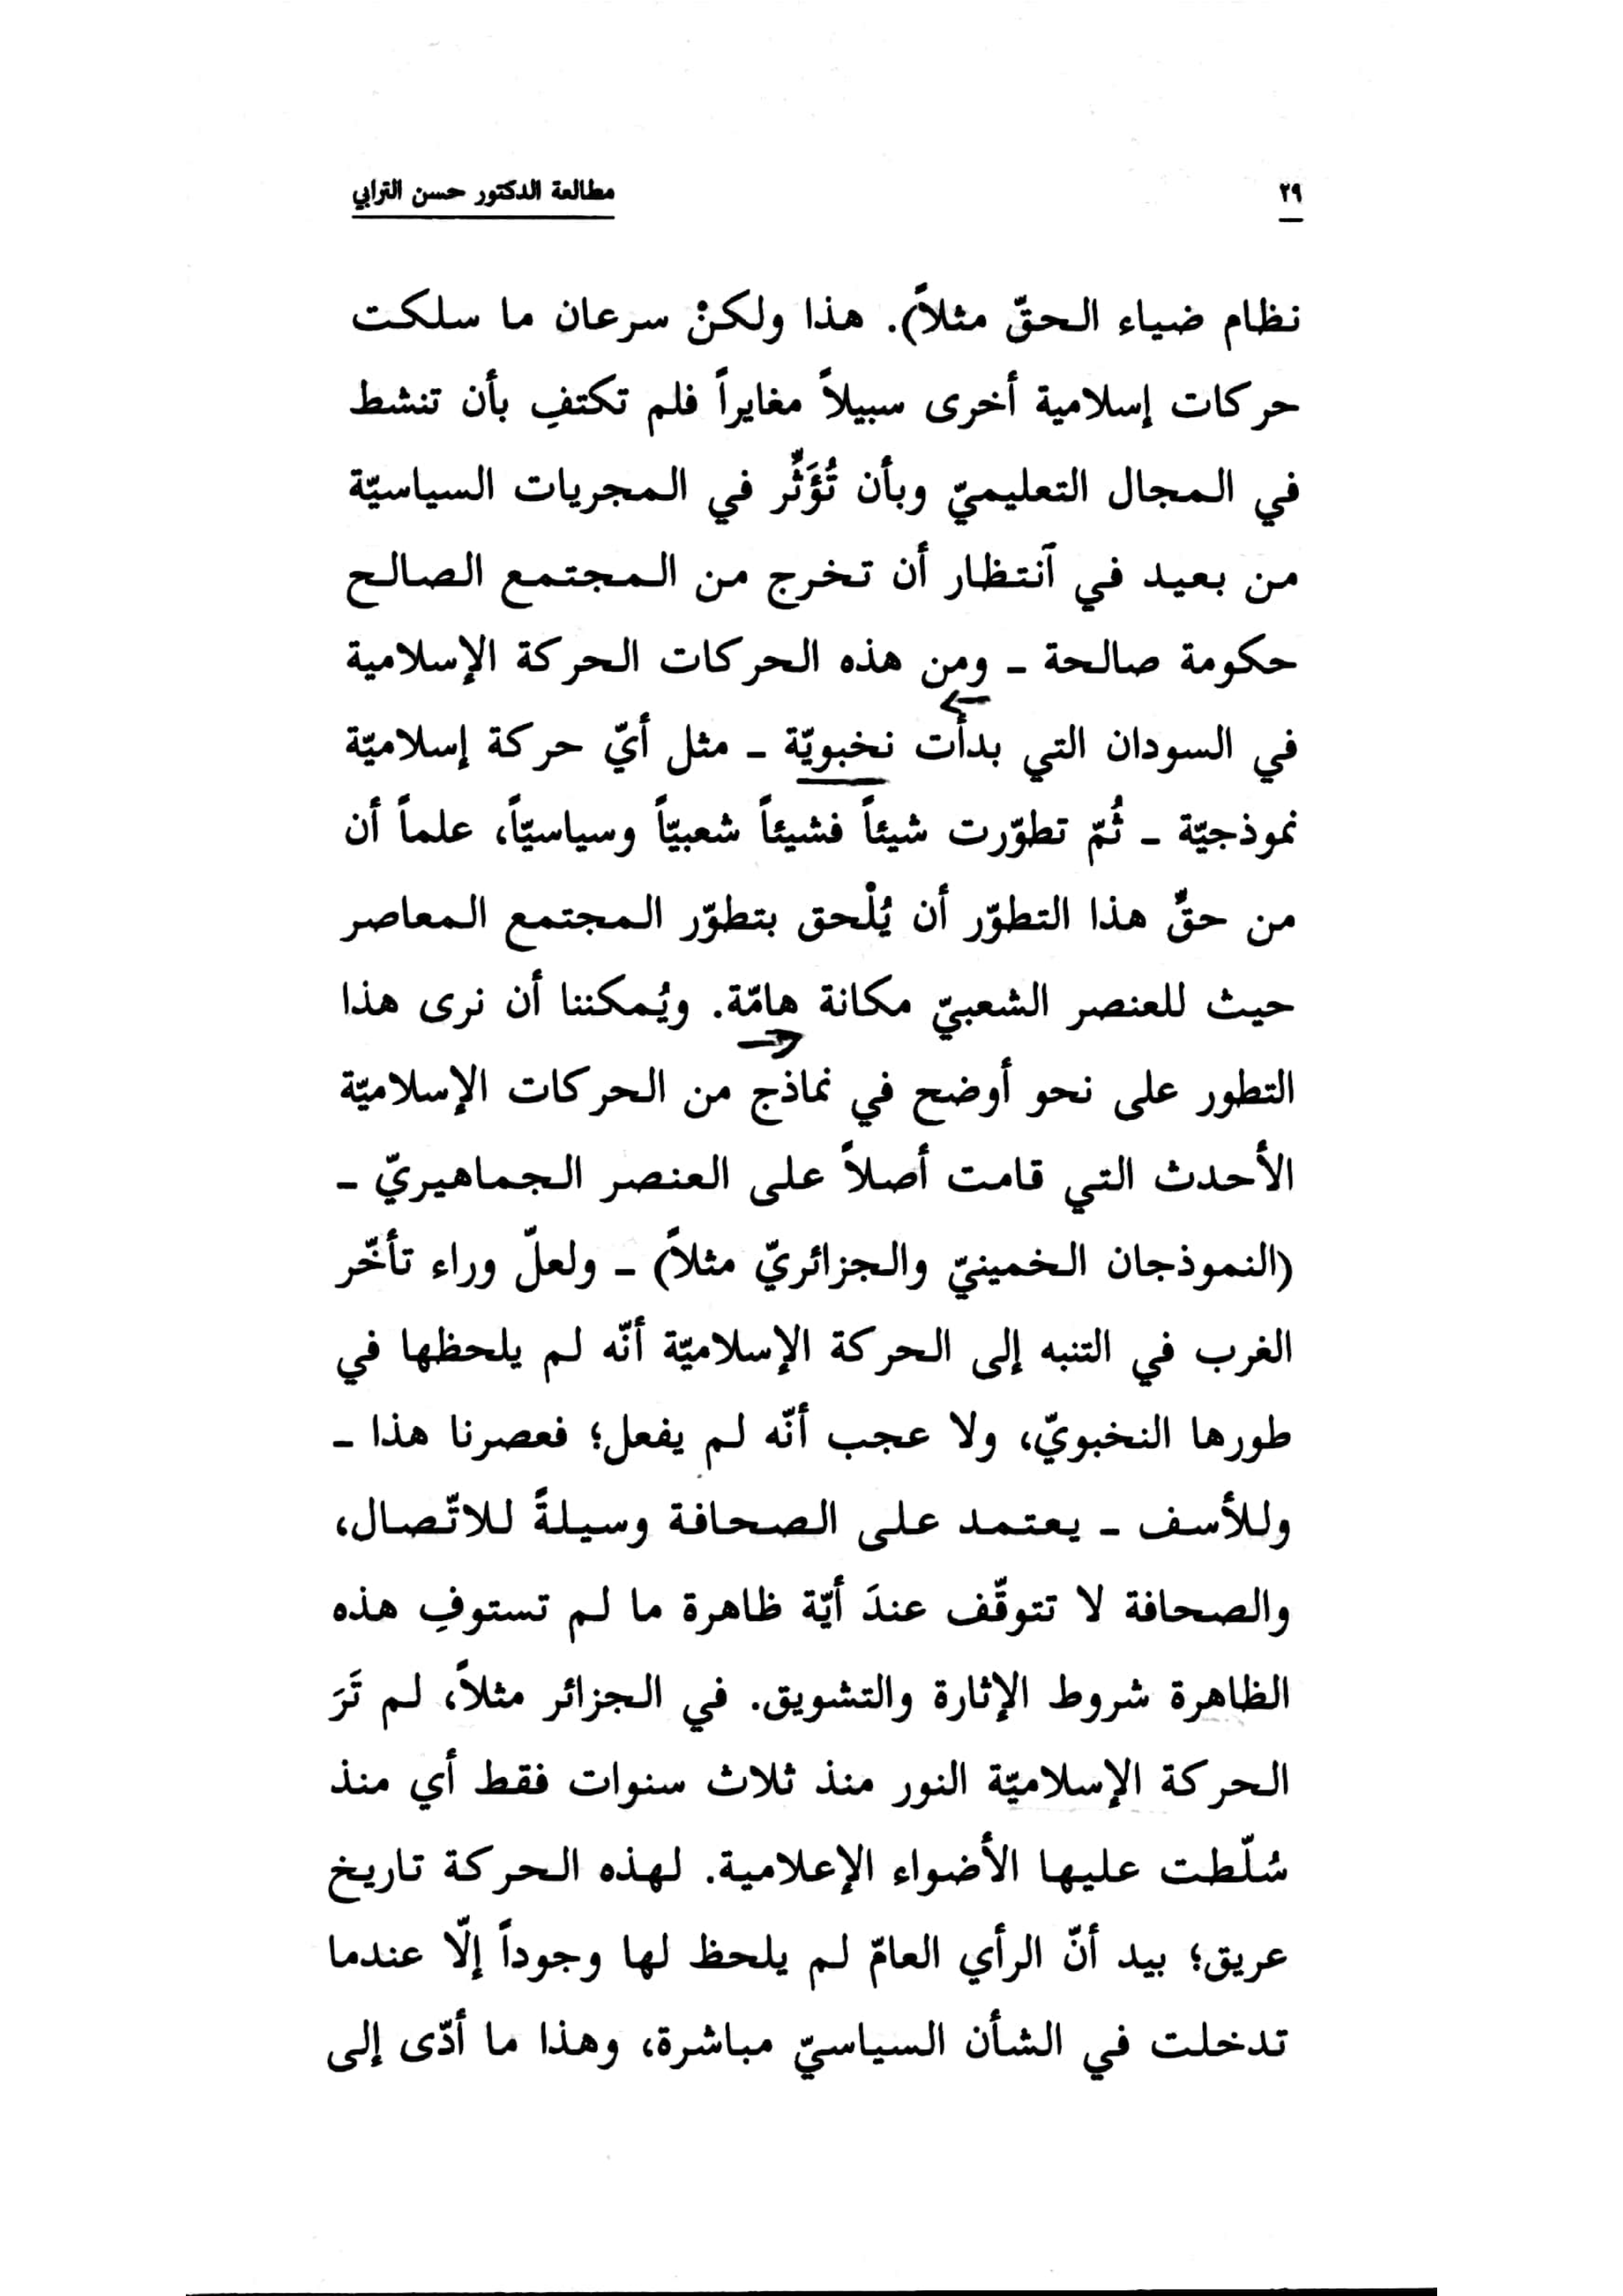 ٢٩
مطالعة الدكتور حسن الترابي
نظام ضياء الحقّ مثلاً). هذا ولكنْ سرعان ما سلكت
حركات إسلامية أخرى سبيلاً مغايراً فلم تكتفِ بأن تنشط
في المجال التعليميّ وبأن تُؤَثِّر في المجريات السياسيّة
من بعيد في ٱنتظار أن تخرج من المجتمع الصالح
حكومة صالحة ـ ومن هذه الحركات الحركة الإسلامية
في السودان التي بدأت نخبويّة ـ مثل أيّ حركة إسلاميّة
نموذجيّة ـ ثُمّ تطوّرت شيئاً فشيئاً شعبيّاً وسياسيّاً، علماً أن
من حقِّ هذا التطوّر أن يُلْحق بتطوّر المجتمع المعاصر
حيث للعنصر الشعبيّ مكانة هامّة. ويُمكننا أن نرى هذا
التطور على نحو أوضح في نماذج من الحركات الإسلاميّة
الأحدث التي قامت أصلاً على العنصر الجماهيريّ ـ
(النموذجان الخمينيّ والجزائريّ مثلاً) ـ ولعلّ وراء تأخّر
الغرب في التنبه إلى الحركة الإسلاميّة أنّه لم يلحظها في
طورها النخبويّ، ولا عجب أنّه لم يفعل؛ فعصرنا هذا ـ
وللأسف ـ يعتمد على الصحافة وسيلةً للاتّصال،
والصحافة لا تتوقّف عندَ أيّة ظاهرة ما لم تستوفِ هذه
الظاهرة شروط الإثارة والتشويق. في الجزائر مثلاً، لم تَرَ
الحركة الإسلاميّة النور منذ ثلاث سنوات فقط أي منذ
سُلّطت عليها الأضواء الإعلامية. لهذه الحركة تاريخ
عريق؛ بيد أنّ الرأي العامّ لم يلحظ لها وجوداً إلّا عندما
تدخلت في الشأن السياسيّ مباشرة، وهذا ما أدّى إلى